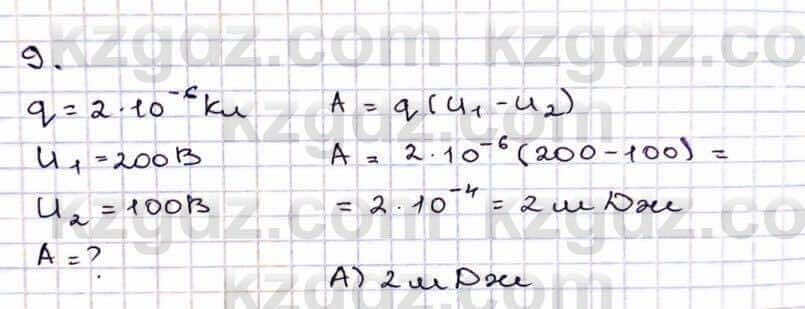 9.
q = 2·10⁻⁶ Кл
U₁ = 200В
U₂ = 100В
A = ?
A = q(U₁ - U₂)
A = 2·10⁻⁶(200-100) =
= 2·10⁻⁴ = 2мДж
А) 2мДж
kzgdz.com kzgdz.com
kzgdz.com kzgdz.com
kzgdz.com kzgdz.com
kzgdz.com kzgdz.com